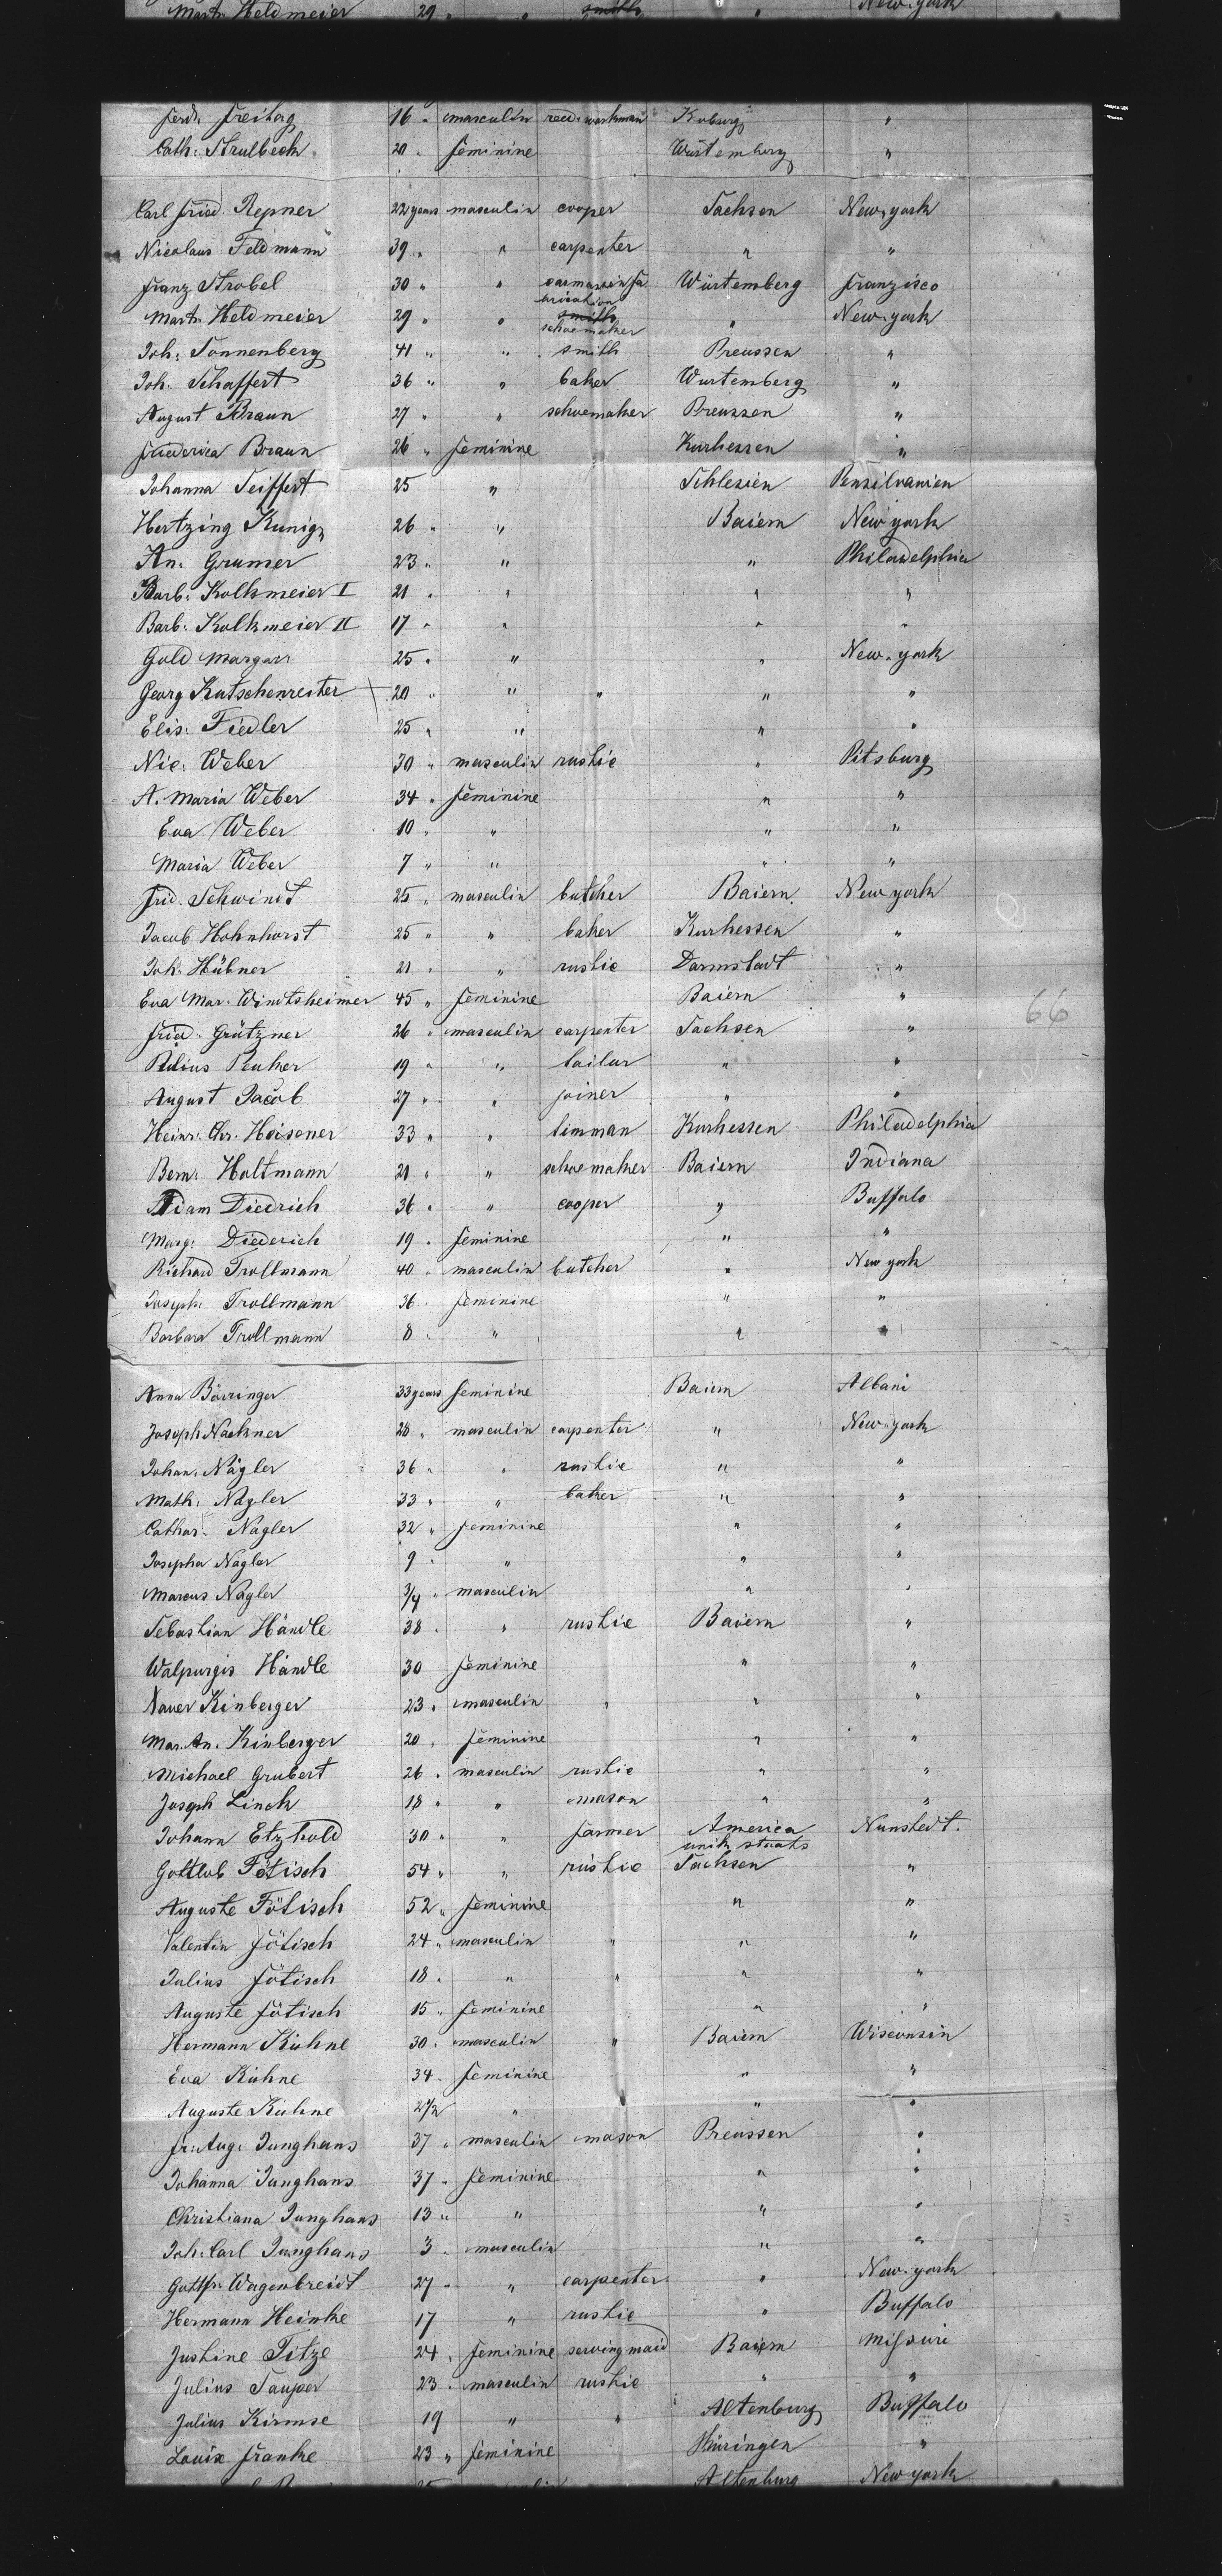 Mart. Heldmeier 29 " " smith " New-york
Ferd. Freitag 16 " masculin reed workman Koburg "
Cath: Strulbeck 20 " feminine Würtemberg "
Carl Fried. Repner 22 years masculin cooper Sachsen New-york
Nicolaus Feldmann 39 " " carpenter " "
Franz Strobel 30 " " Würtemberg Franzisco
Mart. Heldmeier 29 " " smith schoemaker " New-york
Joh: Sonnenberg 41 " " smith Preussen "
Joh. Schaffert 36 " " baker Würtemberg "
August Braun 27 " " schoemaker Preussen "
Friederica Braun 26 " feminine Kurhessen "
Johanna Seiffert 25 " Schlesien Pensilvanien
Hertzing Kunig 26 " " Baiern New york
An. Gramer 23 " " " Philadelphia
Barb: Kolkmeier I 21 " " " "
Barb: Kolkmeier II 17 " " " "
Gold Margar 25 " " " New-york
Georg Kutschenreiter 20 " " " " "
Elis: Fiedler 25 " " " "
Nic: Weber 30 " masculin rustic " Pitsburg
A. Maria Weber 34 " feminine " "
Eva Weber 10 " " " "
Maria Weber 7 " " " "
Frid. Schwindt 25 " masculin butcher Baiern New york
Jacob Hohnhorst 25 " " baker Kurhessen "
Joh. Hübner 21 " " rustic Darmstadt "
Eva Mar. Windtsheimer 45 " feminine Baiern "
66
Fried. Grützner 26 " masculin carpenter Sachsen "
Julius Peuker 19 " " tailur " "
August Jacob 27 " " joiner " "
Heinr. Chr. Heisener 33 " " timman Kurhessen Philadelphia
Bern: Holtmann 21 " " schoemaker Baiern Indiana
Adam Diedrich 36 " " cooper " Buffalo
Marg: Diederich 19 " feminine " "
Richard Trollmann 40 " masculin butcher " New york
Joseph: Trollmann 36 " feminine " "
Barbara Trollmann 8 " " " "
Anna Börringer 33 years feminine Baiern Albani
Joseph Nackner 28 " masculin carpenter " New-york
Johan. Nägler 36 " " rustic " "
Math: Nägler 33 " " baker " "
Cathar. Nagler 32 " feminine " "
Josepha Nagler 9 " " " "
Marcus Nagler 3/4 " masculin " "
Sebastian Händle 38 " " rustic Baiern "
Walpurgis Händle 30 feminine " "
Xaver Kinberger 23 " masculin " " "
Mar. An. Kinberger 20 " feminine " "
Michael Grubert 26 " masculin rustic " "
Joseph Linck 18 " " mason " "
Johann Etzhold 30 " " farmer America unit. staats Nunstedt.
Gottlob Fötisch 54 " " rustic Sachsen "
Auguste Fötisch 52 " feminine " "
Valentin Fötisch 24 " masculin " " "
Julius Fötisch 18 " " " " "
Auguste Fötisch 15 " feminine " "
Hermann Kühne 30 " masculin " Baiern Wisconsin
Eva Kühne 34 " feminine " "
Auguste Kühne 2 1/2 " " "
Fr: Aug: Junghans 37 " masculin mason Preussen "
Johanna Junghans 37 " feminine " "
Christiana Junghans 13 " " " "
Joh: Carl Junghans 3 " masculin " "
Gottfr. Wagenbreidt 27 " " carpenter " New-york
Hermann Heinke 17 " rustic " Buffalo
Justine Titze 24 " feminine serving maid Baiern Missuri
Julius Sauper 23 " masculin rustic " "
Julius Kirmse 19 " " Altenburg Buffalo
Louis Franke 23 " feminine Thüringen "
Altenburg New york